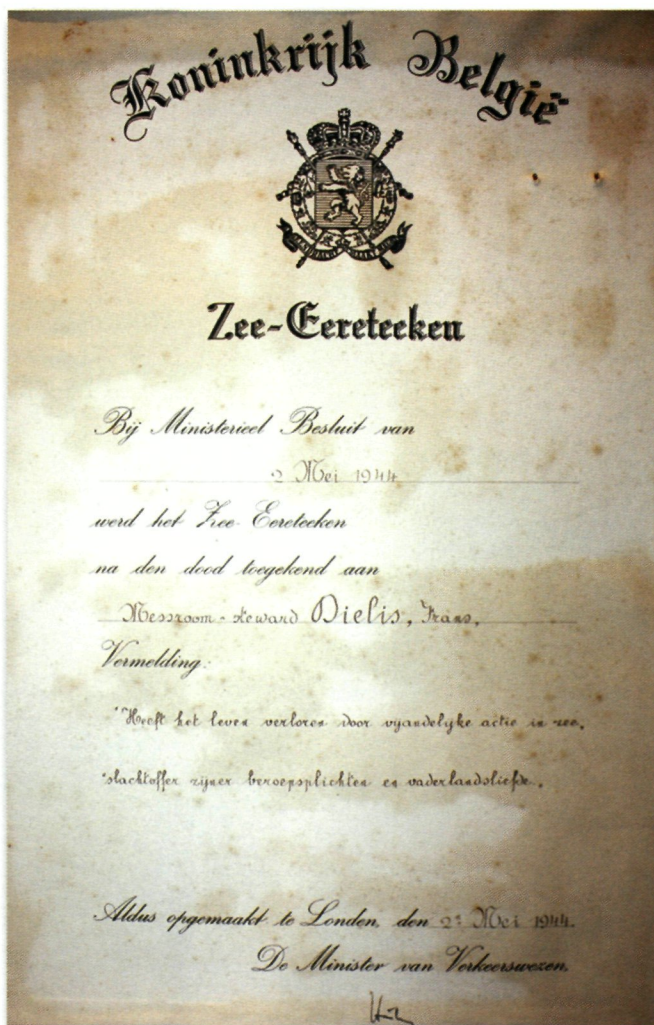 Koninkrijk België
EENDRACHT MAAKT MACHT
Zee-Eereteeken
Bij Ministerieel Besluit van
2 Mei 1944
werd het Zee-Eereteeken
na den dood toegekend aan
Messroom-steward Dielis, Frans.
Vermelding:
"Heeft het leven verloren door vyandelyke actie in zee,
"slachtoffer zyner beroepsplichten en vaderlandsliefde.
Aldus opgemaakt te Londen, den 2 Mei 1944.
De Minister van Verkeerswezen,